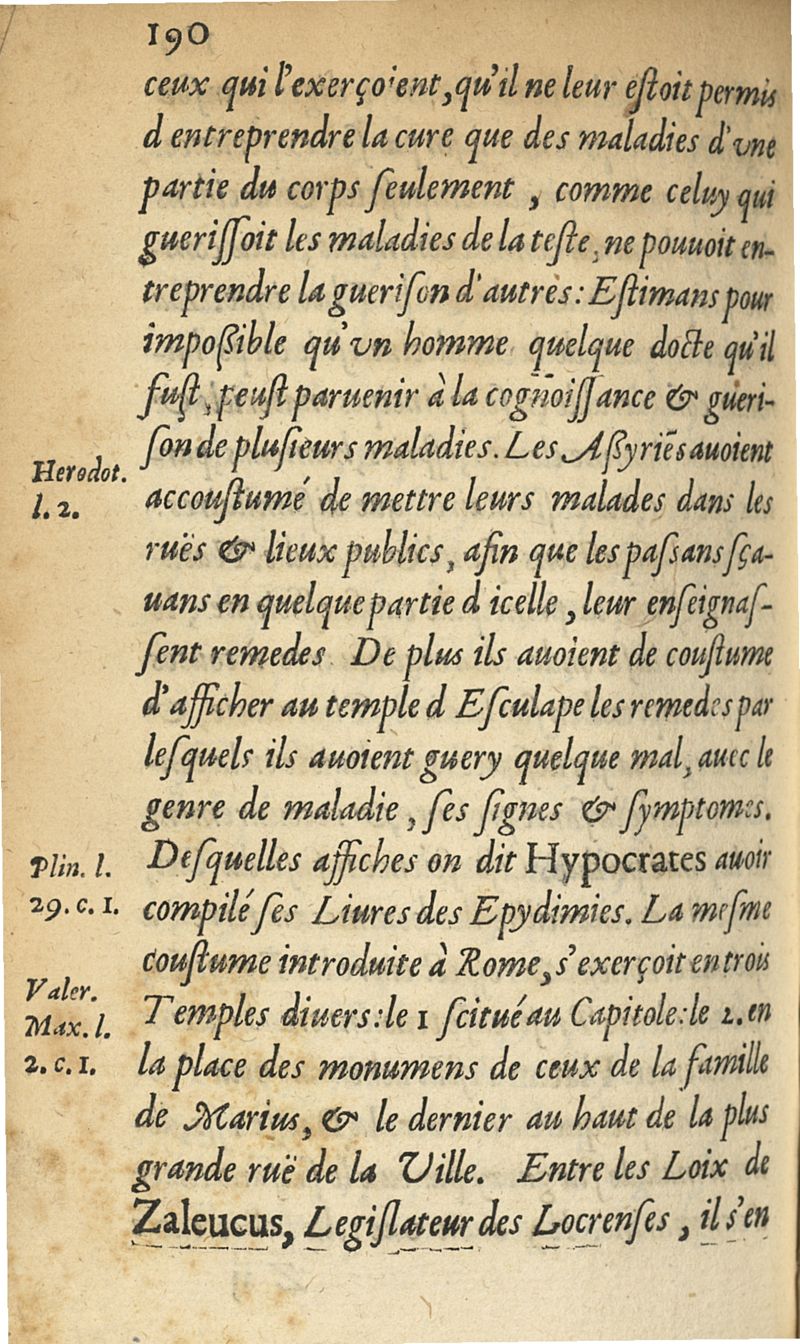 190
ceux qui l'exerçoient, qu'il ne leur eſtoit permis
d entreprendre la cure que des maladies d'vne
partie du corps ſeulement , comme celuy qui
gueriſſoit les maladies de la teſte, ne pouuoit en-
treprendre la gueriſon d'autres: Eſtimans pour
impoßible qu'vn homme quelque docte qu'il
fuſt, peuſt paruenir à la cogñoiſſance & gueri-
ſon de pluſieurs maladies. Les Aßyriēs auoient
Herodot.
l. 2.
accouſtumé de mettre leurs malades dans les
ruës & lieux publics, afin que les paſsans ſça-
uans en quelque partie d icelle , leur enſeignaſ-
ſent remedes De plus ils auoient de couſtume
d'afficher au temple d Eſculape les remedes par
leſquels ils auoient guery quelque mal, auec le
genre de maladie , ſes ſignes & ſymptomes.
Plin. l.
29. c. 1.
Deſquelles affiches on dit Hypocrates auoir
compilé ſes Liures des Epydimies. La meſme
couſtume introduite à Rome, s'exerçoit en trois
Valer.
Max. l.
2. c. 1.
Temples diuers: le 1 ſcitué au Capitole: le 2. en
la place des monumens de ceux de la famille
de Marius, & le dernier au haut de la plus
grande ruë de la Ville. Entre les Loix de
Zaleucus, Legiſlateur des Locrenſes , il s'en